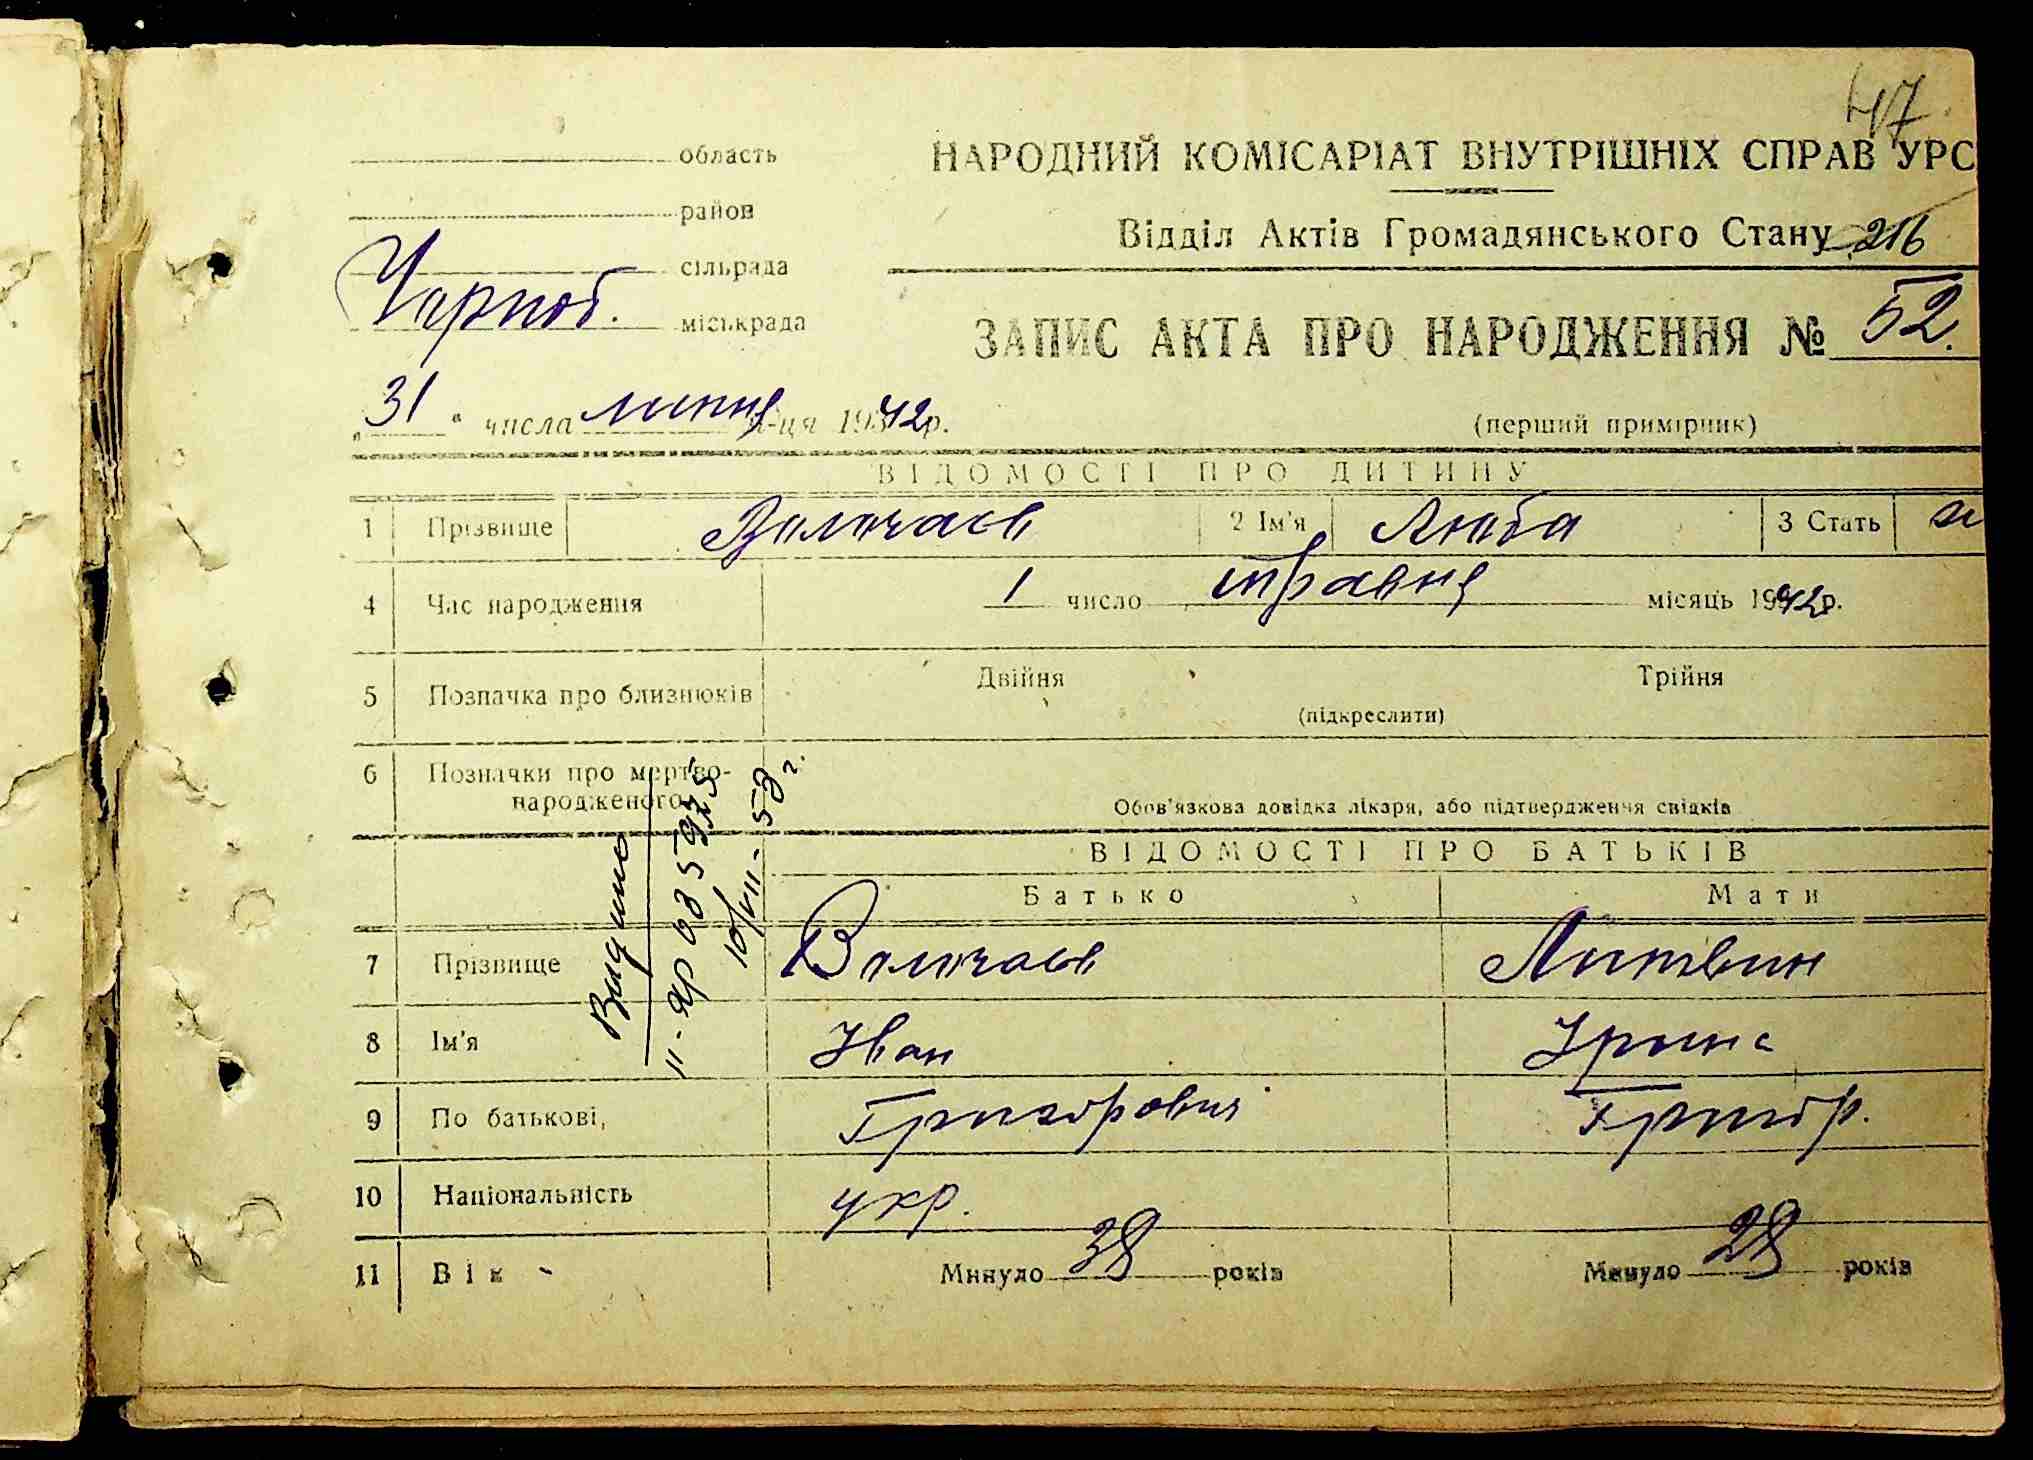 47
область
НАРОДНИЙ КОМІСАРІАТ ВНУТРІШНІХ СПРАВ УРС
район
Відділ Актів Громадянського Стану 216
сільрада
Чорноб. міськрада
ЗАПИС АКТА ПРО НАРОДЖЕННЯ № 52.
„31“ числа липня м-ця 1942р.
(перший примірник)
ВІДОМОСТІ ПРО ДИТИНУ
1 Прізвище 2 Ім'я Люба 3 Стать
4 Час народження 1 число травня місяць 1942р.
5 Позначка про близнюків Двійня Трійня
(підкреслити)
6 Позначки про мертво-
народженого
Обов'язкова довідка лікаря, або підтвердження свідків
ВІДОМОСТІ ПРО БАТЬКІВ
Батько Мати
7 Прізвище Литвин
8 Ім'я Іван Ірина
9 По батькові, Григорович Григор.
10 Національність укр.
11 Вік Минуло 38 років Минуло 28 років
Видано